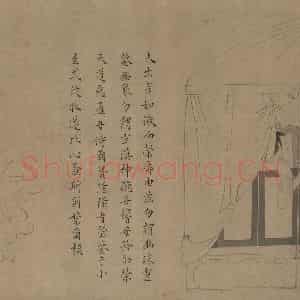 夫出言如微而榮辱由茲勿謂幽昧靈
監無象勿謂玄漠神聽無響無矜爾榮
天道惡盈無恃爾貴隆隆者墜鑒于小
星戒彼攸遂比心螽斯則繁爾類
Shufawang.cn